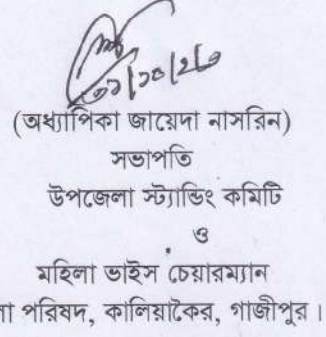 (অধ্যাপিকা জায়েদা নাসরিন)
সভাপতি
উপজেলা স্ট্যান্ডিং কমিটি
ও
মহিলা ভাইস চেয়ারম্যান
পরিষদ, কালিয়াকৈর, গাজীপুর।